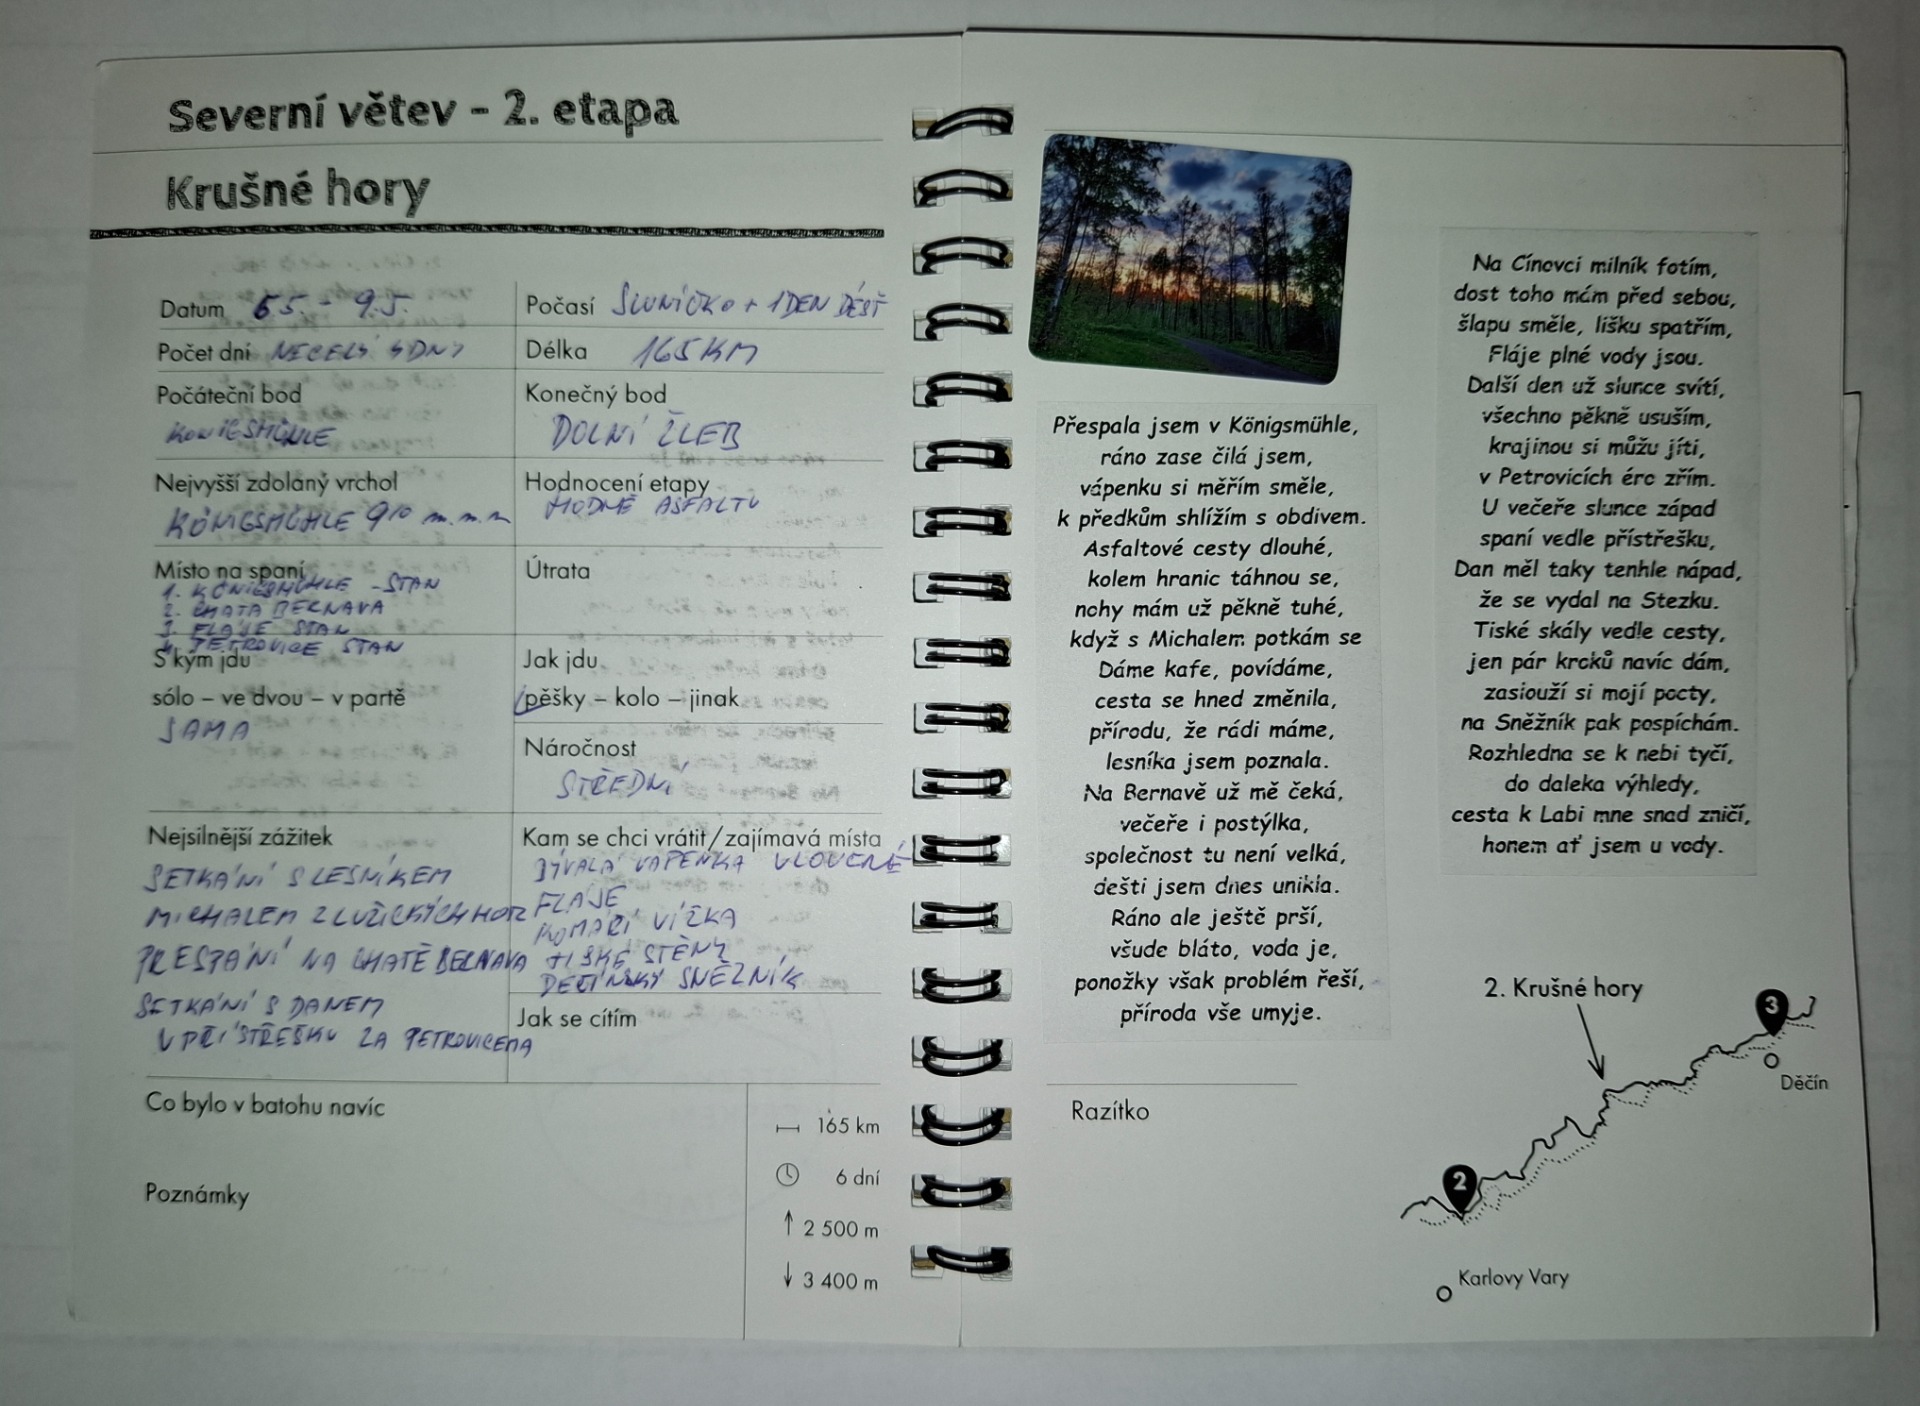 Severní větev – 2. etapa
Krušné hory
Datum 6.5. - 9.5.
Počasí SLUNÍČKO + 1 DEN DÉŠŤ
Počet dní NECELÝ 4 DNY
Délka 165 KM
Počáteční bod
KONIGSMÜHLE
Konečný bod
DOLNÍ ŽLEB
Nejvyšší zdolaný vrchol
KÖNIGSMÜHLE 910 m.m.m
Hodnocení etapy
HODNĚ ASFALTU
Místo na spaní
1. KÖNIGSMÜHLE - STAN
2. CHATA BERNAVA
3. FLÁJE STAN
4. PETROVICE STAN
Útrata
S kým jdu
sólo – ve dvou – v partě
SAMA
Jak jdu
pěšky – kolo – jinak
Náročnost
STŘEDNÍ
Nejsilnější zážitek
SETKÁNÍ S LESNÍKEM
MICHALEM Z LUŽICKÝCH HOR
PŘESPÁNÍ NA CHATĚ BERNAVA
SETKÁNÍ S DANEM
V PŘÍSTŘEŠKU ZA PETROVICEMA
Kam se chci vrátit / zajímavá místa
BÝVALÁ VÁPENKA V LOUČNÉ
FLÁJE
KOMÁŘÍ VÍŽKA
TISKÉ STĚNY
DĚČÍNSKÝ SNĚŽNÍK
Jak se cítím
Co bylo v batohu navíc
Poznámky
165 km
6 dní
2 500 m
3 400 m
Přespala jsem v Königsmühle,
ráno zase čilá jsem,
vápenku si měřím směle,
k předkům shlížím s obdivem.
Asfaltové cesty dlouhé,
kolem hranic táhnou se,
nohy mám už pěkně tuhé,
když s Michalem potkám se
Dáme kafe, povídáme,
cesta se hned změnila,
přírodu, že rádi máme,
lesníka jsem poznala.
Na Bernavě už mě čeká,
večeře i postýlka,
společnost tu není velká,
dešti jsem dnes unikla.
Ráno ale ještě prší,
všude bláto, voda je,
ponožky však problém řeší,
příroda vše umyje.
Na Cínovci milník fotím,
dost toho mám před sebou,
šlapu směle, lišku spatřím,
Fláje plné vody jsou.
Další den už slunce svítí,
všechno pěkně usuším,
krajinou si můžu jíti,
v Petrovicích éro zřím.
U večeře slunce západ
spaní vedle přístřešku,
Dan měl taky tenhle nápad,
že se vydal na Stezku.
Tiské skály vedle cesty,
jen pár kroků navíc dám,
zaslouží si mojí pocty,
na Sněžník pak pospíchám.
Rozhledna se k nebi tyčí,
do daleka výhledy,
cesta k Labi mne snad zničí,
honem ať jsem u vody.
Razítko
2. Krušné hory
3
Děčín
2
Karlovy Vary